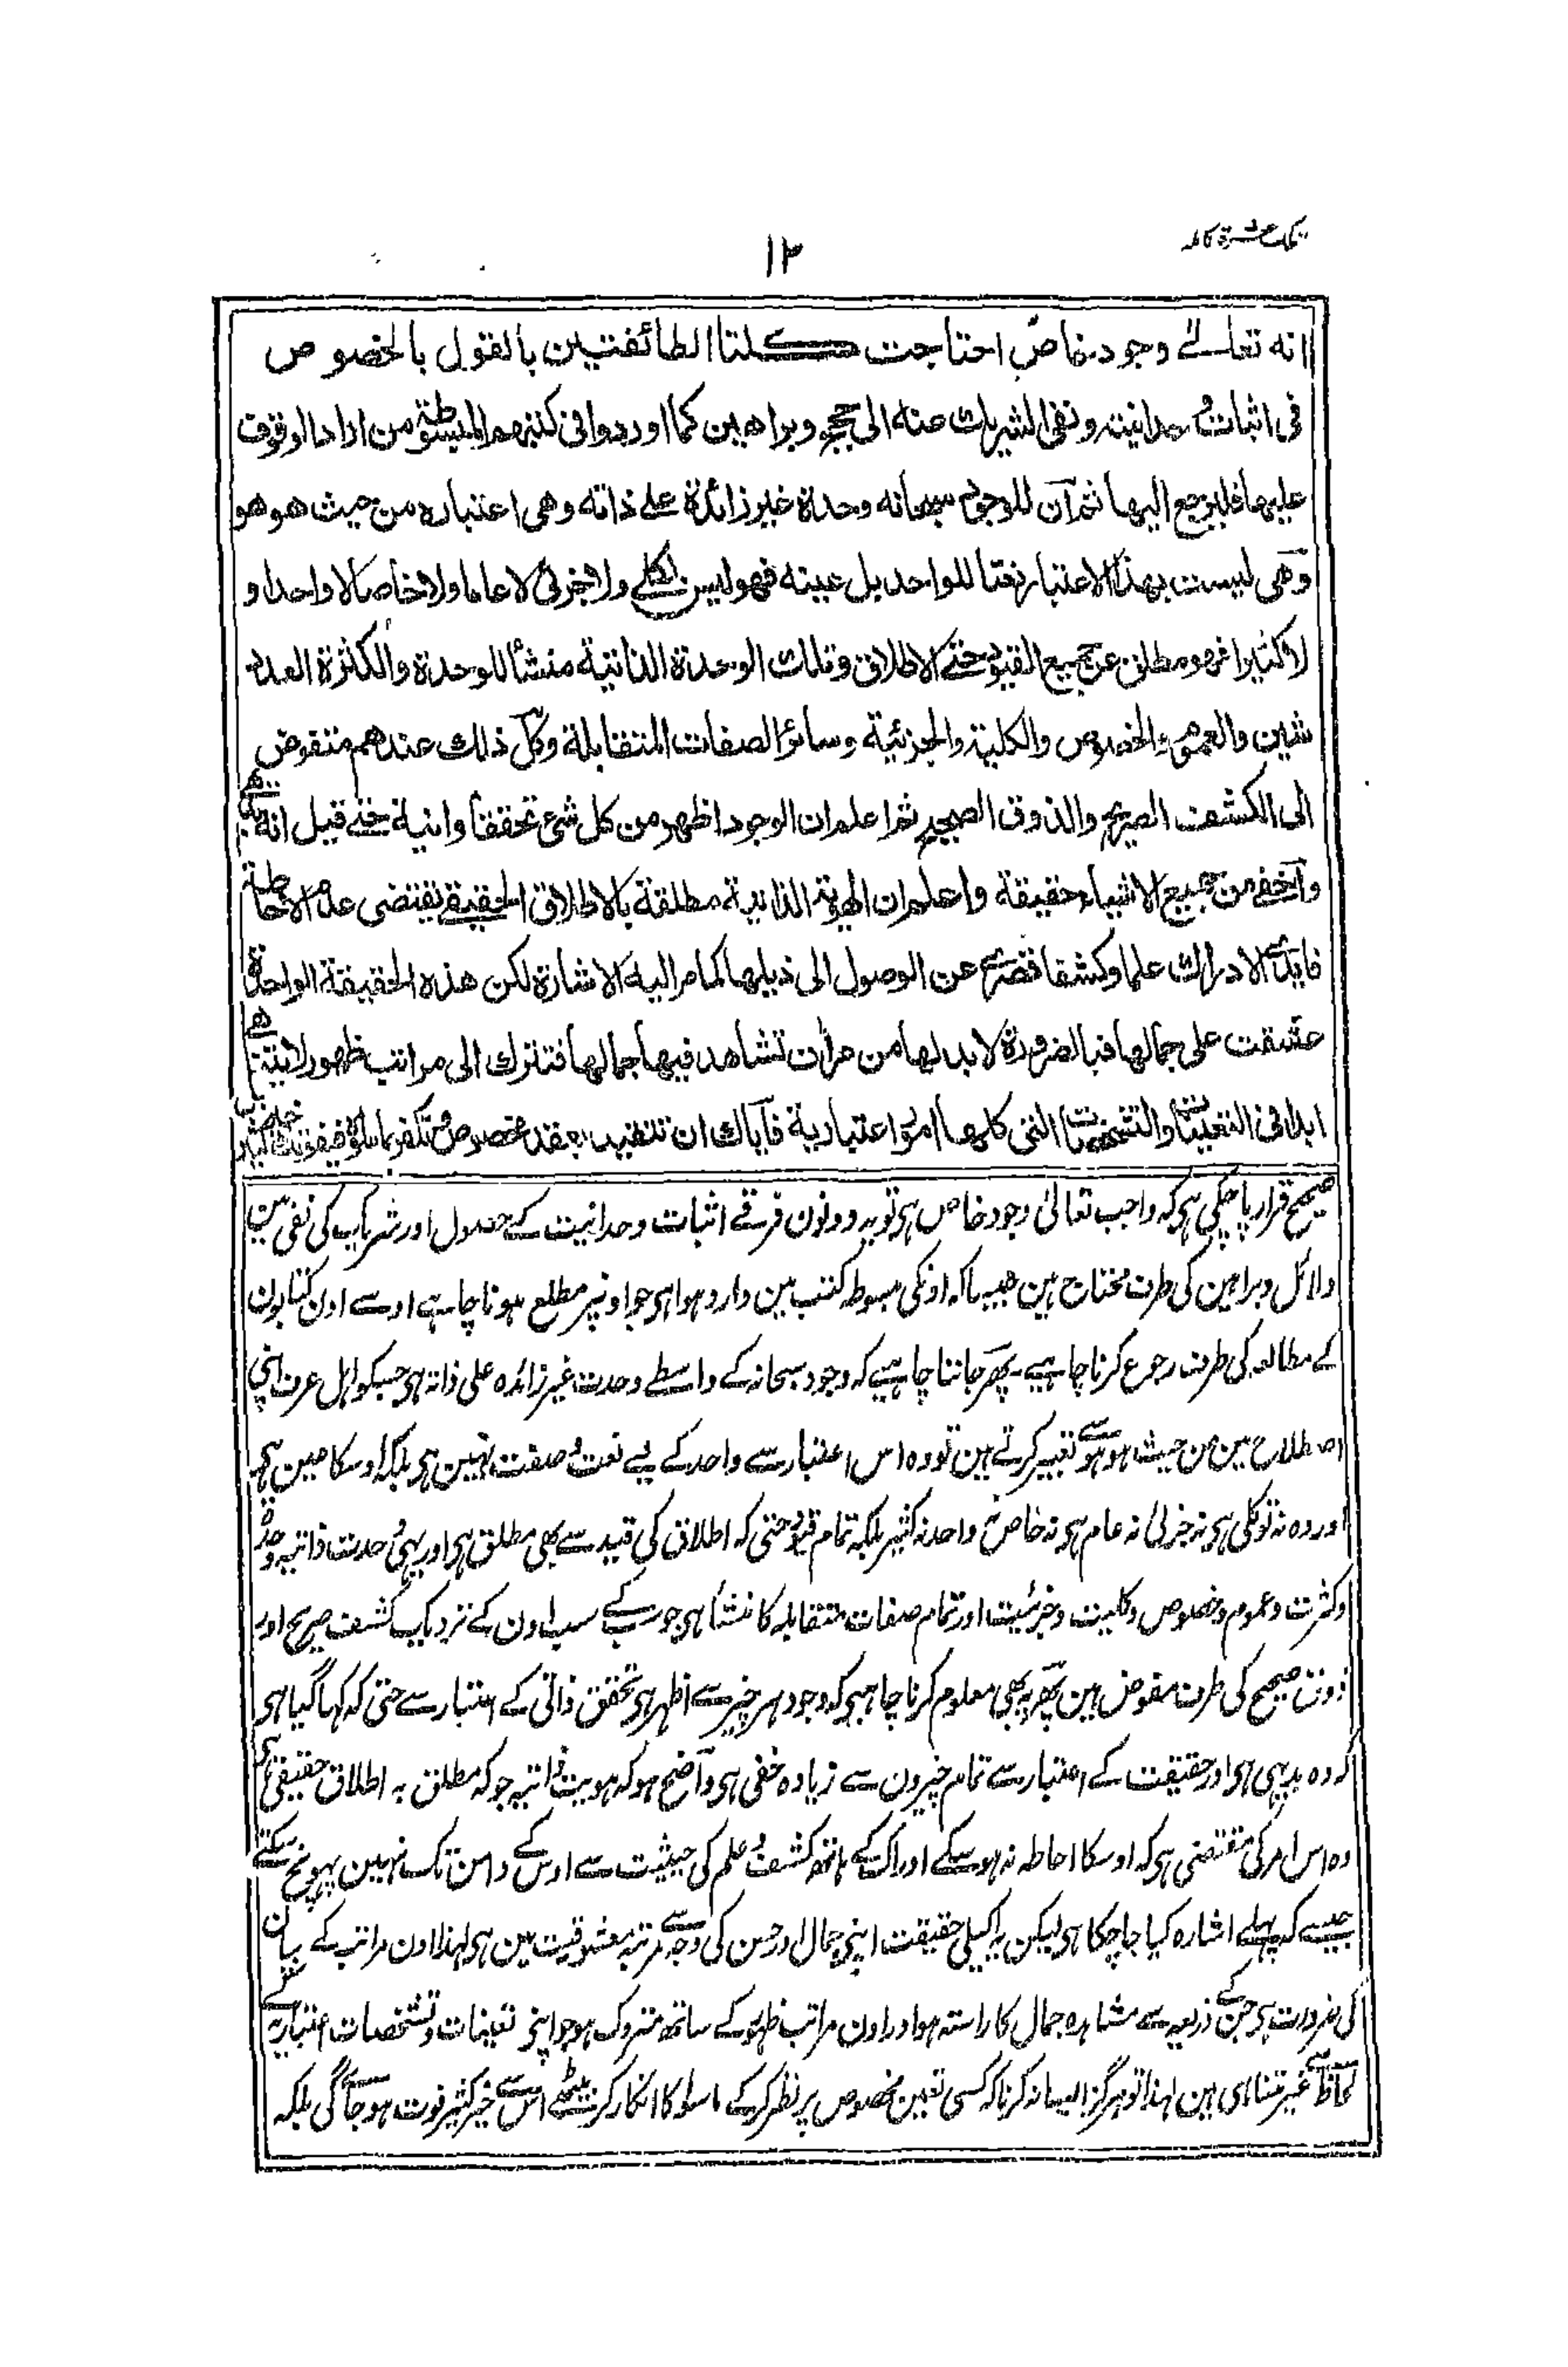 تلک عشرة کاملہ
۱۲
انه تعالےٰ وجود خاصٌ احتاجت کلتا الطائفتین بالقول بالخصوص
فی اثبات وحدانیته ونفی الشریک عنه الی حجج وبراهین کما اوردوا فی کتبهم المبسوطة من اراد الوقوف
علیها فلیرجع الیها ثم ان للوجود سبحانه وحدة غیر زائدة علے ذاته وهی اعتباره من حیث هو هو
وهی لیست بهذا الاعتبار نعتا للواحد بل عینه فهو لیس بکلے ولا جزئی لا عاما ولا خاصا لا واحدا و
لا کثیرا فهو مطلق عن جمیع القیود حتے الاطلاق وتلک الوحدة الذاتیة منشأ للوحدة والکثرة العد
شین والعموم والخصوص والکلیة والجزئیة وسائر الصفات المتقابلة وکل ذلک عندهم متفوض
الی الکشف الصریح والذوق الصحیح ثم اعلم ان الوجود اظهر من کل شیء تحققا وانیة حتے قیل انه بدیهی
واخفے من جمیع الاشیاء حقیقة واعلم ان الهویة الذاتیة مطلقة بالاطلاق الحقیقے تقتضی عدم الاحاطة
فایدی الادراک علما وکشفا قصری عن الوصول الی ذیلها کما مر الیه الاشارة لکن هذه الحقیقة الواحدة
عشقت علی جمالها فبالضرورة لا بد لها من مرآت تشاهد فیها جمالها فتنزلت الی مراتب ظهور لا یتناهی
ابدا فی التعینات والتشخصات التی کلها امور اعتباریة فایاک ان تتقید بعقد مخصوص وتکفر بما سواه فیفوتک خیر کثیر
صحیح قرار پا چکی ہی کہ واجب تعالیٰ وجود خاص ہی تو یہ دونون فرقے اثبات وحدانیت کے حصول اور شریک کی نفی مین
دلائل وبراہین کی طرف محتاج ہین جیسا کہ اونکی مبسوطہ کتب مین وارد ہوا ہی جو اونپر مطلع ہونا چاہے اوسے اون کتابون
کے مطالعہ کی طرف رجوع کرنا چاہیے پھر جاننا چاہیے کہ وجود سبحانہ کے واسطے وحدت غیر زائدہ علی ذاتہ ہی جسکو اہل عرف اپنی
اصطلاح مین من حیث ہو ہو سے تعبیر کرتے ہین تو وہ اس اعتبار سے واحد کے لیے نعت وصفت نہین ہی بلکہ اوسکا عین ہی
اور وہ نہ تو کلی ہی نہ جزئی نہ عام ہی نہ خاص نہ واحد نہ کثیر بلکہ تمام قیود حتی کہ اطلاق کی قید سے بھی مطلق ہی اور یہی وحدت ذاتیہ وحدت
وکثرت وعموم وخصوص وکلیت وجزئیت اور تمام صفات متقابلہ کا منشأ ہی جو سب کے سب اون کے نزدیک کشف صریح اور
ذوق صحیح کی طرف مفوض ہین پھر یہ بھی معلوم کرنا چاہیے کہ وجود ہر چیز سے اظہر ہی تحقق ذاتی کے اعتبار سے حتی کہ کہا گیا ہی
کہ وہ بدیہی ہی اور حقیقت کے اعتبار سے تمام چیزون سے زیادہ خفی ہی واضح ہو کہ ہویت ذاتیہ جو کہ مطلق بہ اطلاق حقیقی ہی
وہ اس امر کی مقتضی ہی کہ اوسکا احاطہ نہ ہو سکے ادراک کے ہاتھ کشف وعلم کی حیثیت سے اوس کے دامن تک نہین پہونچ سکتے
جیسے کہ پہلے اشارہ کیا جا چکا ہی لیکن یہ اکیلی حقیقت اپنی جمال اور حسن کی وجہ سے مرتبہ معشوقیت مین ہی لہذا اون مراتب کے بیان
کی ضرورت ہی جن کے ذریعہ سے مشاہدہ جمال کا راستہ ہو اور اون مراتب ظہور کے ساتھ متروک ہو جو اپنی تعینات وتشخصات اعتباریہ کے
لحاظ سے غیر متناہی ہین لہذا تو ہرگز ایسا نہ کرنا کہ کسی تعین مخصوص پر نظر کر کے ماسوا کا انکار کر بیٹھے اس سے خیر کثیر فوت ہو جائے گی بلکہ